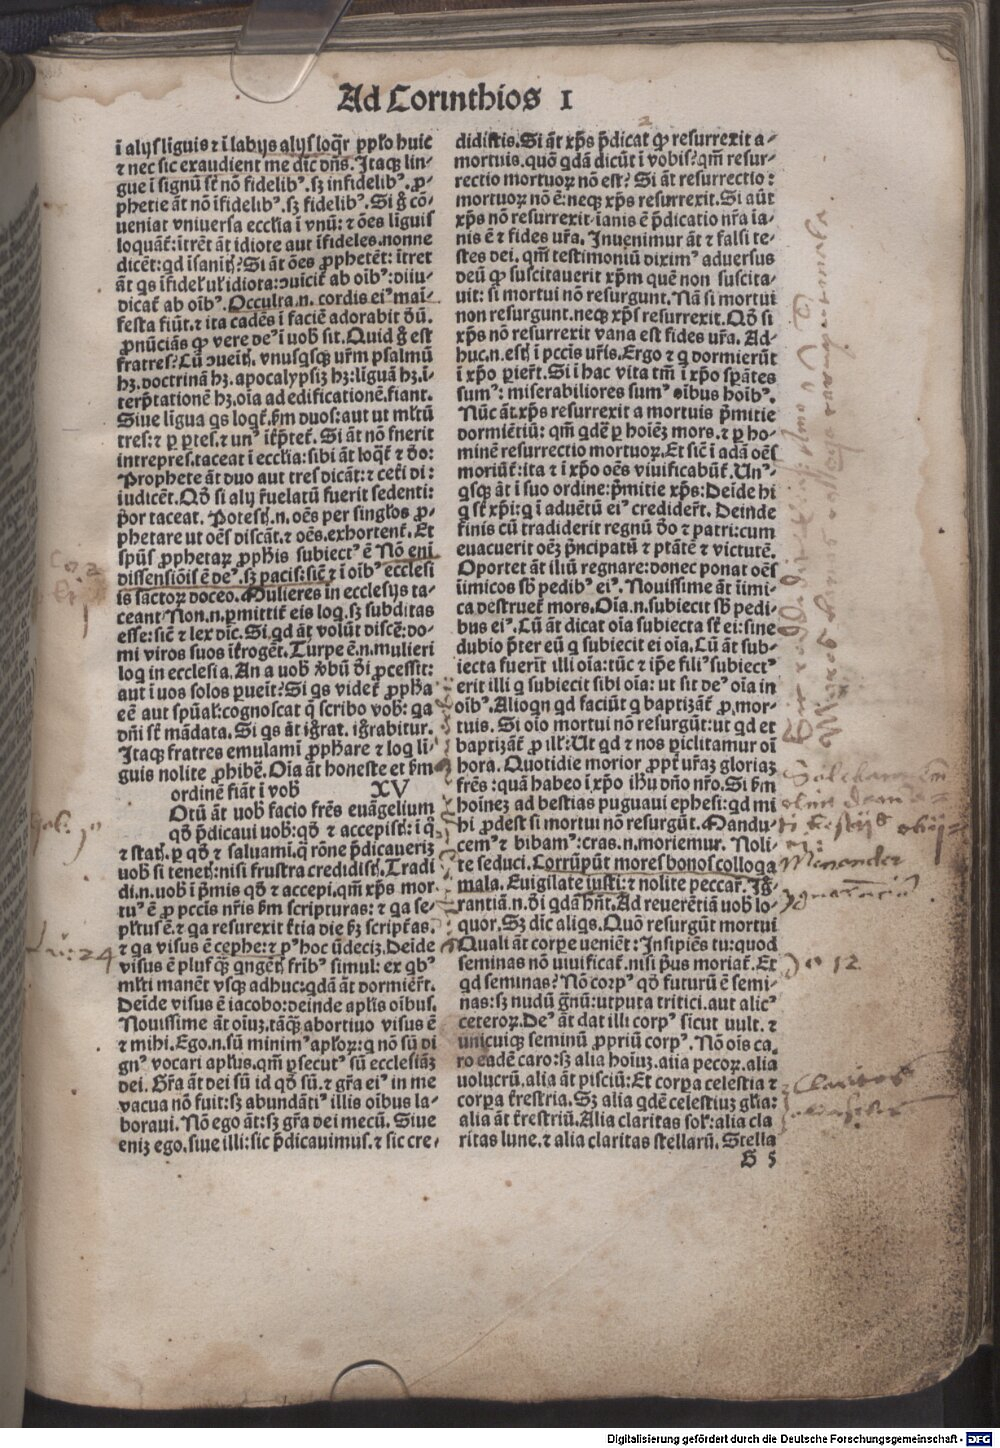 Ad Corinthios I
ī alijs līguis ⁊ ī labijs alijs loq̄r pp̄lo huic
⁊ nec sic exaudient me dic̄ dn̄s. Itaqꝫ lin-
gue ī signū sūt nō fidelibꝰ. sꝫ infidelibꝰ. ꝓ-
phetie āt nō īfidelibꝰ. sꝫ fidelibꝰ. Si g̊ cō-
ueniat vniuersa eccl̄ia ī vnū: ⁊ oēs līguis
loquāt̄: ītrēt āt idiote aut īfideles. nonne
dicēt: qd īsanit̄? Si āt oēs ꝓphetēt: ītret
āt qs īfidel̄ ul̄ idiota: ↄuicit̄ ab oībꝰ: diiu-
dicat̄ ab oībꝰ. Occulta .n. cordis eiꝰ mai-
festa fiūt. ⁊ ita cadēs ī faciē adorabit dū.
ꝓnūciās ꝙ vere deꝰ ī uob̄ sit. Quid g̊ est
fratres? Cū ↄueit̄. vnusqsqꝫ ur̄m psalmū
hꝫ. doctrinā hꝫ. apocalypsiꝫ hꝫ: līguā hꝫ. ī-
terp̄tationē hꝫ. oīa ad edificationē. fiant.
Siue līgua qs loqt̄. ẜm duos: aut ut ml̄tū
tres: ⁊ ꝑ ꝑtes. ⁊ unꝰ īt̄pret̄. Si āt nō fnerit
intrepres. taceat ī eccl̄ia: sibi āt loqt̄ ⁊ đo:
Prophete āt duo aut tres dicāt: ⁊ cet̄i di:
iudicēt. Qđ si alij r̄uelatū fuerit sedenti:
p̄or taceat. Potestꝫ .n. oēs per singl̄os ꝓ-
phetare ut oēs discāt. ⁊ oēs. exhortent̄. Et
sp̄us ꝓphetaꝝ ꝓphīs subiectꝰ ē Nō eni
dissensiōis ē deꝰ. sꝫ pacis: sic̄ ⁊ ī oībꝰ ecclesi
is sāctoꝝ doceo. Mulieres in ecclesijs ta-
ceant Non .n. ꝑmittit̄ eis loq. sꝫ subditas
esse: sic̄ ⁊ lex dic̄. Si qd āt volūt discē: do-
mi viros suos īt̄rogēt. Turpe ē .n. mulieri
loq in ecclesia. An a uob̄ v̄bū đi ꝓcessit:
aut ī uos solos ꝑueit? Si qs videt̄ ꝓpha
eē aut sp̄ual̄: cognoscat q̄ scribo vob̄: qa
dn̄i st̄ mādata. Si qs āt iḡrat. iḡrabitur.
Itaqꝫ fratres emulami ꝓphare ⁊ loq lī-
guis nolite ꝓhibē. Oīa āt honeste et ẜm
ordinē fiāt ī vob̄ XV
Otū āt uob̄ facio frēs euāgelium
qđ p̄dicaui uob̄: qđ ⁊ accepistꝫ: ī q̊
⁊ statꝫ. ꝑ qđ ⁊ saluami. q̄ rōne p̄dicauerīꝫ
uob̄ si tenetꝫ: nisi frustra credidistꝫ. Tradi
di .n. uob̄ ī p̄mis qđ ⁊ accepi. qm̄ xp̄s mor
tuꝰ ē ꝓ pccīs nr̄is ẜm scripturas: ⁊ qa se-
pl̄tus ē. ⁊ qa resurexit t̄tia die ẜꝫ script̄as.
⁊ qa visus ē cephe: ⁊ pꝰ hoc ūdeciꝫ. Deīde
visus ē plusq̄ꝫ qngēt̄ fr̄ibꝰ simul: ex qbꝰ
ml̄ti manēt vsqꝫ adhuc: qdā āt dormier̄t.
Deīde visus ē iacobo: deinde apl̄is oībus.
Nouissime āt oīuꝫ. tāq̄ꝫ abortiuo visus ē
⁊ mihi. Ego .n. sū minimꝰ apl̄oꝝ: q nō sū di
gnꝰ vocari apl̄us. qm̄ ꝑsecutꝰ sū ecclesiāꝫ
dei. Gr̄a āt dei sū id qđ sū. ⁊ gr̄a eiꝰ in me
vacua nō fuit: sꝫ abundātiꝰ illis oībus la-
boraui. Nō ego āt: sꝫ gr̄a dei mecū. Siue
eniꝫ ego. siue illi: sic p̄dicauimus. ⁊ sic cre-
didistis. Si āt xp̄s p̄dicat̄ ꝙ resurrexit a-
mortuis. quō qdā dicūt ī vobis? qm̄ resur-
rectio mortuoꝝ nō est? Si āt resurrectio:
mortuoꝝ nō ē: neqꝫ xp̄s resurrexit. Si aūt
xp̄s nō resurrexit. ianis ē p̄dicatio nr̄a ia-
nis ē ⁊ fides ur̄a. Inuenimur āt ⁊ falsi te-
stes dei. qm̄ testimoniū diximꝰ aduersus
deū ꝙ suscitauerit xp̄m quē non suscita-
uit: si mortui nō resurgunt. Nā si mortui
non resurgunt. neqꝫ xp̄s resurrexit. Qđ si
xp̄s nō resurrexit vana est fides ur̄a. Ad-
huc .n. estꝫ ī pccīs ur̄is. Ergo ⁊ q dormierūt
ī xp̄o ꝑier̄t. Si ī hac vita tm̄ ī xp̄o sꝑātes
sumꝰ: miserabiliores sumꝰ oībus hoībꝰ.
Nūc āt xp̄s resurrexit a mortuis p̄mitie
dormiētiū: qm̄ qdē ꝑ hoīeꝫ mors. ⁊ ꝑ ho-
minē resurrectio mortuoꝝ. Et sic̄ ī adā oēs
moriūt̄: ita ⁊ ī xp̄o oēs viuificabūt̄. Unꝰ-
qsqꝫ āt ī suo ordine: p̄mitie xp̄s: Deīde hi
q st̄ xp̄i: q ī aduētū eiꝰ credider̄t. Deinde
finis cū tradiderit regnū đo ⁊ patri: cum
euacuerit oēꝫ p̄ncipatū ⁊ ptātē ⁊ victutē.
Oportet āt illū regnare: donec ponat oēs
iimicos sb̄ pedibꝰ eiꝰ. Nouissime āt īimi-
ca destruet̄ mors. Oīa .n. subiecit sb̄ pedi-
bus eiꝰ. Cū āt dicat oīa subiecta st̄ ei: sine
dubio p̄ter eū q subiecit ei oīa. Cū āt sub-
iecta fuerīt illi oīa: tūc ⁊ ip̄e filiꝰ subiectꝰ
erit illi q subiecit sibi oīa: ut sit deꝰ oīa in
oībꝰ. Alioqn qd faciūt q baptizāt̄ ꝓ mor-
tuis. Si oīo mortui nō resurgūt: ut qd et
baptizāt̄ ꝓ ill̄: Ut qd ⁊ nos ꝑiclitamur oī
hora. Quotidie morior ꝓpt̄ ur̄aꝫ gloriaꝫ
frēs: quā habeo ī xp̄o ih̄u dn̄o nr̄o. Si ẜm
hoīnez ad bestias puguaui ephesi: qd mi
hi ꝓdest si mortui nō resurgūt. Mandu-
cemꝰ ⁊ bibamꝰ: cras .n. moriemur. Noli-
te seduci. Corrūpūt mores bonos colloqa
mala. Euigilate iusti: ⁊ nolite peccar̄. Ig̊-
rantiā .n. đi qdā hn̄t. Ad reuerētiā uob̄ lo-
quor. Sꝫ dic̄ aliqs. Quō resurgūt mortui
Quali āt corpe ueniēt: Insipiēs tu: quod
seminas nō uiuificat̄. nisi p̄us moriat̄. Et
qd seminas? Nō corpꝰ qđ futurū ē semi-
nas: sꝫ nudū g̊nū: utputa tritici. aut alicꝰ
ceteroꝝ. Deꝰ āt dat illi corpꝰ sicut uult. ⁊
unicuiqꝫ seminū ꝓpriū corpꝰ. Nō oīs ca
ro eadē caro: sꝫ alia hoīuꝫ. aiia pecoꝝ. alia
uolucrū. alia āt pisciū: Et corpa celestia ⁊
corpa t̄restria. Sꝫ alia qdē celestiuꝫ gl̄ia:
alia āt t̄restriū. Alia claritas sol̄: alia cla
ritas lune. ⁊ alia claritas stellarū. Stella
G 5
Lu: 24
Menander
Jo 12
Claritas
Digitalisierung gefördert durch die Deutsche Forschungsgemeinschaft - DFG